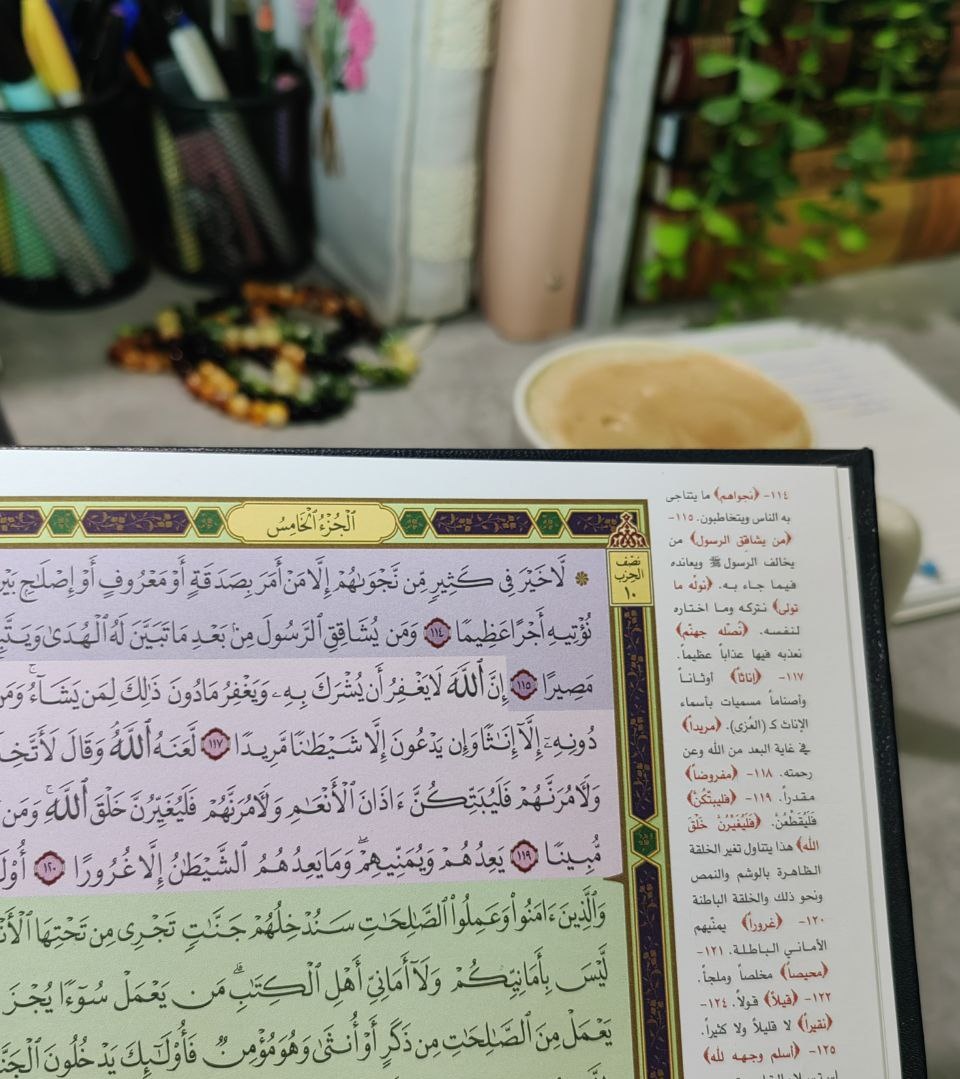 الجُزْءُ الخَامِسُ
نصف
الحزب
١٠
۞ لَّا خَيْرَ فِي كَثِيرٍ مِّن نَّجْوَىٰهُمْ إِلَّا مَنْ أَمَرَ بِصَدَقَةٍ أَوْ مَعْرُوفٍ أَوْ إِصْلَٰحٍ
نُؤْتِيهِ أَجْرًا عَظِيمًا ١١٤ وَمَن يُشَاقِقِ ٱلرَّسُولَ مِنۢ بَعْدِ مَا تَبَيَّنَ لَهُ ٱلْهُدَىٰ
مَصِيرًا ١١٥ إِنَّ ٱللَّهَ لَا يَغْفِرُ أَن يُشْرَكَ بِهِۦ وَيَغْفِرُ مَا دُونَ ذَٰلِكَ لِمَن يَشَآءُۚ
دُونِهِۦٓ إِلَّآ إِنَٰثًا وَإِن يَدْعُونَ إِلَّا شَيْطَٰنًا مَّرِيدًا ١١٧ لَّعَنَهُ ٱللَّهُ وَقَالَ
وَلَأٓمُرَنَّهُمْ فَلَيُبَتِّكُنَّ ءَاذَانَ ٱلْأَنْعَٰمِ وَلَأٓمُرَنَّهُمْ فَلَيُغَيِّرُنَّ خَلْقَ ٱللَّهِۚ وَمَن
مُّبِينًا ١١٩ يَعِدُهُمْ وَيُمَنِّيهِمْۖ وَمَا يَعِدُهُمُ ٱلشَّيْطَٰنُ إِلَّا غُرُورًا ١٢٠
وَٱلَّذِينَ ءَامَنُوا۟ وَعَمِلُوا۟ ٱلصَّٰلِحَٰتِ سَنُدْخِلُهُمْ جَنَّٰتٍ تَجْرِى مِن تَحْتِهَا
لَّيْسَ بِأَمَانِيِّكُمْ وَلَآ أَمَانِىِّ أَهْلِ ٱلْكِتَٰبِۗ مَن يَعْمَلْ سُوٓءًا يُجْزَ
يَعْمَلْ مِنَ ٱلصَّٰلِحَٰتِ مِن ذَكَرٍ أَوْ أُنثَىٰ وَهُوَ مُؤْمِنٌ فَأُو۟لَٰٓئِكَ يَدْخُلُونَ
١١٤- ﴿نجواهم﴾ ما يتناجى
به الناس ويتخاطبون. ١١٥-
﴿من يشاقق الرسول﴾ من
يخالف الرسول ﷺ ويعانده
فيما جاء به. ﴿نوله ما
تولى﴾ نتركه وما اختاره
لنفسه. ﴿نُصْله جهنّم﴾
نعذبه فيها عذاباً عظيماً.
١١٧- ﴿إناثاً﴾ أوثاناً
وأصناماً مسميات بأسماء
الإناث كـ (العُزى). ﴿مريداً﴾
في غاية البعد من الله وعن
رحمته. ١١٨- ﴿مفروضاً﴾
مقدراً. ١١٩- ﴿فليبتّكُنّ﴾
فليُقطّعُنّ. ﴿فَلَيُغَيِّرُنَّ خَلْقَ
الله﴾ هذا يتناول تغير الخلقة
الظاهرة بالوشم والنمص
ونحو ذلك والخلقة الباطنة
١٢٠- ﴿غروراً﴾ يمنّيهم
الأماني الباطلة. ١٢١-
﴿محيصاً﴾ مخلصاً وملجأ.
١٢٢- ﴿قيلاً﴾ قولاً. ١٢٤-
﴿نقيراً﴾ لا قليلاً ولا كثيراً.
١٢٥- ﴿أسلم وجهه لله﴾